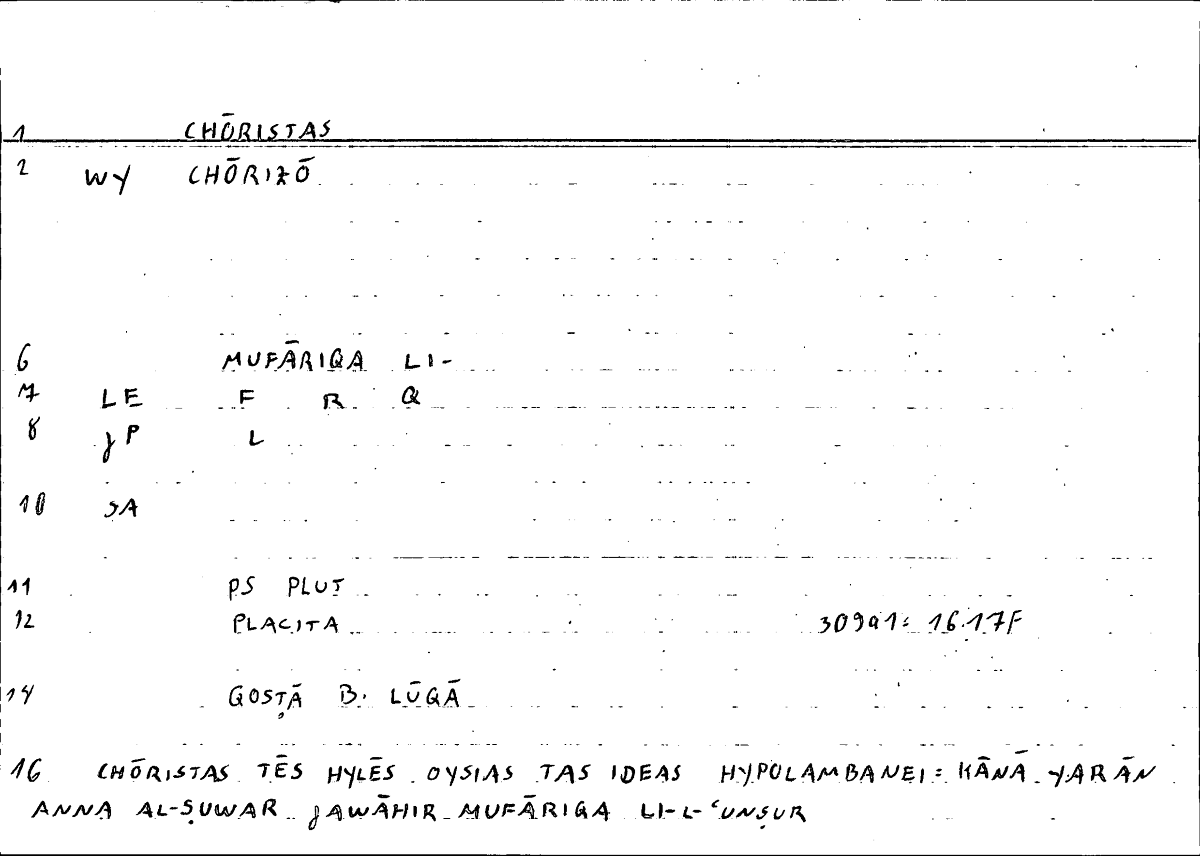 1 CHŌRISTAS
2 WY CHŌRIZŌ
6 MUFĀRIQA LI-
7 LE F R Q
8 JP L
10 SA
11 PS PLUT
12 PLACITA 309a1: 16.17F
14 QOSṬĀ B. LŪQĀ
16 CHŌRISTAS TĒS HYLĒS OYSIAS TAS IDEAS HYPOLAMBANEI: KĀNĀ YARĀN
ANNA AL-ṢUWAR JAWĀHIR MUFĀRIQA LI-L-ʿUNṢUR